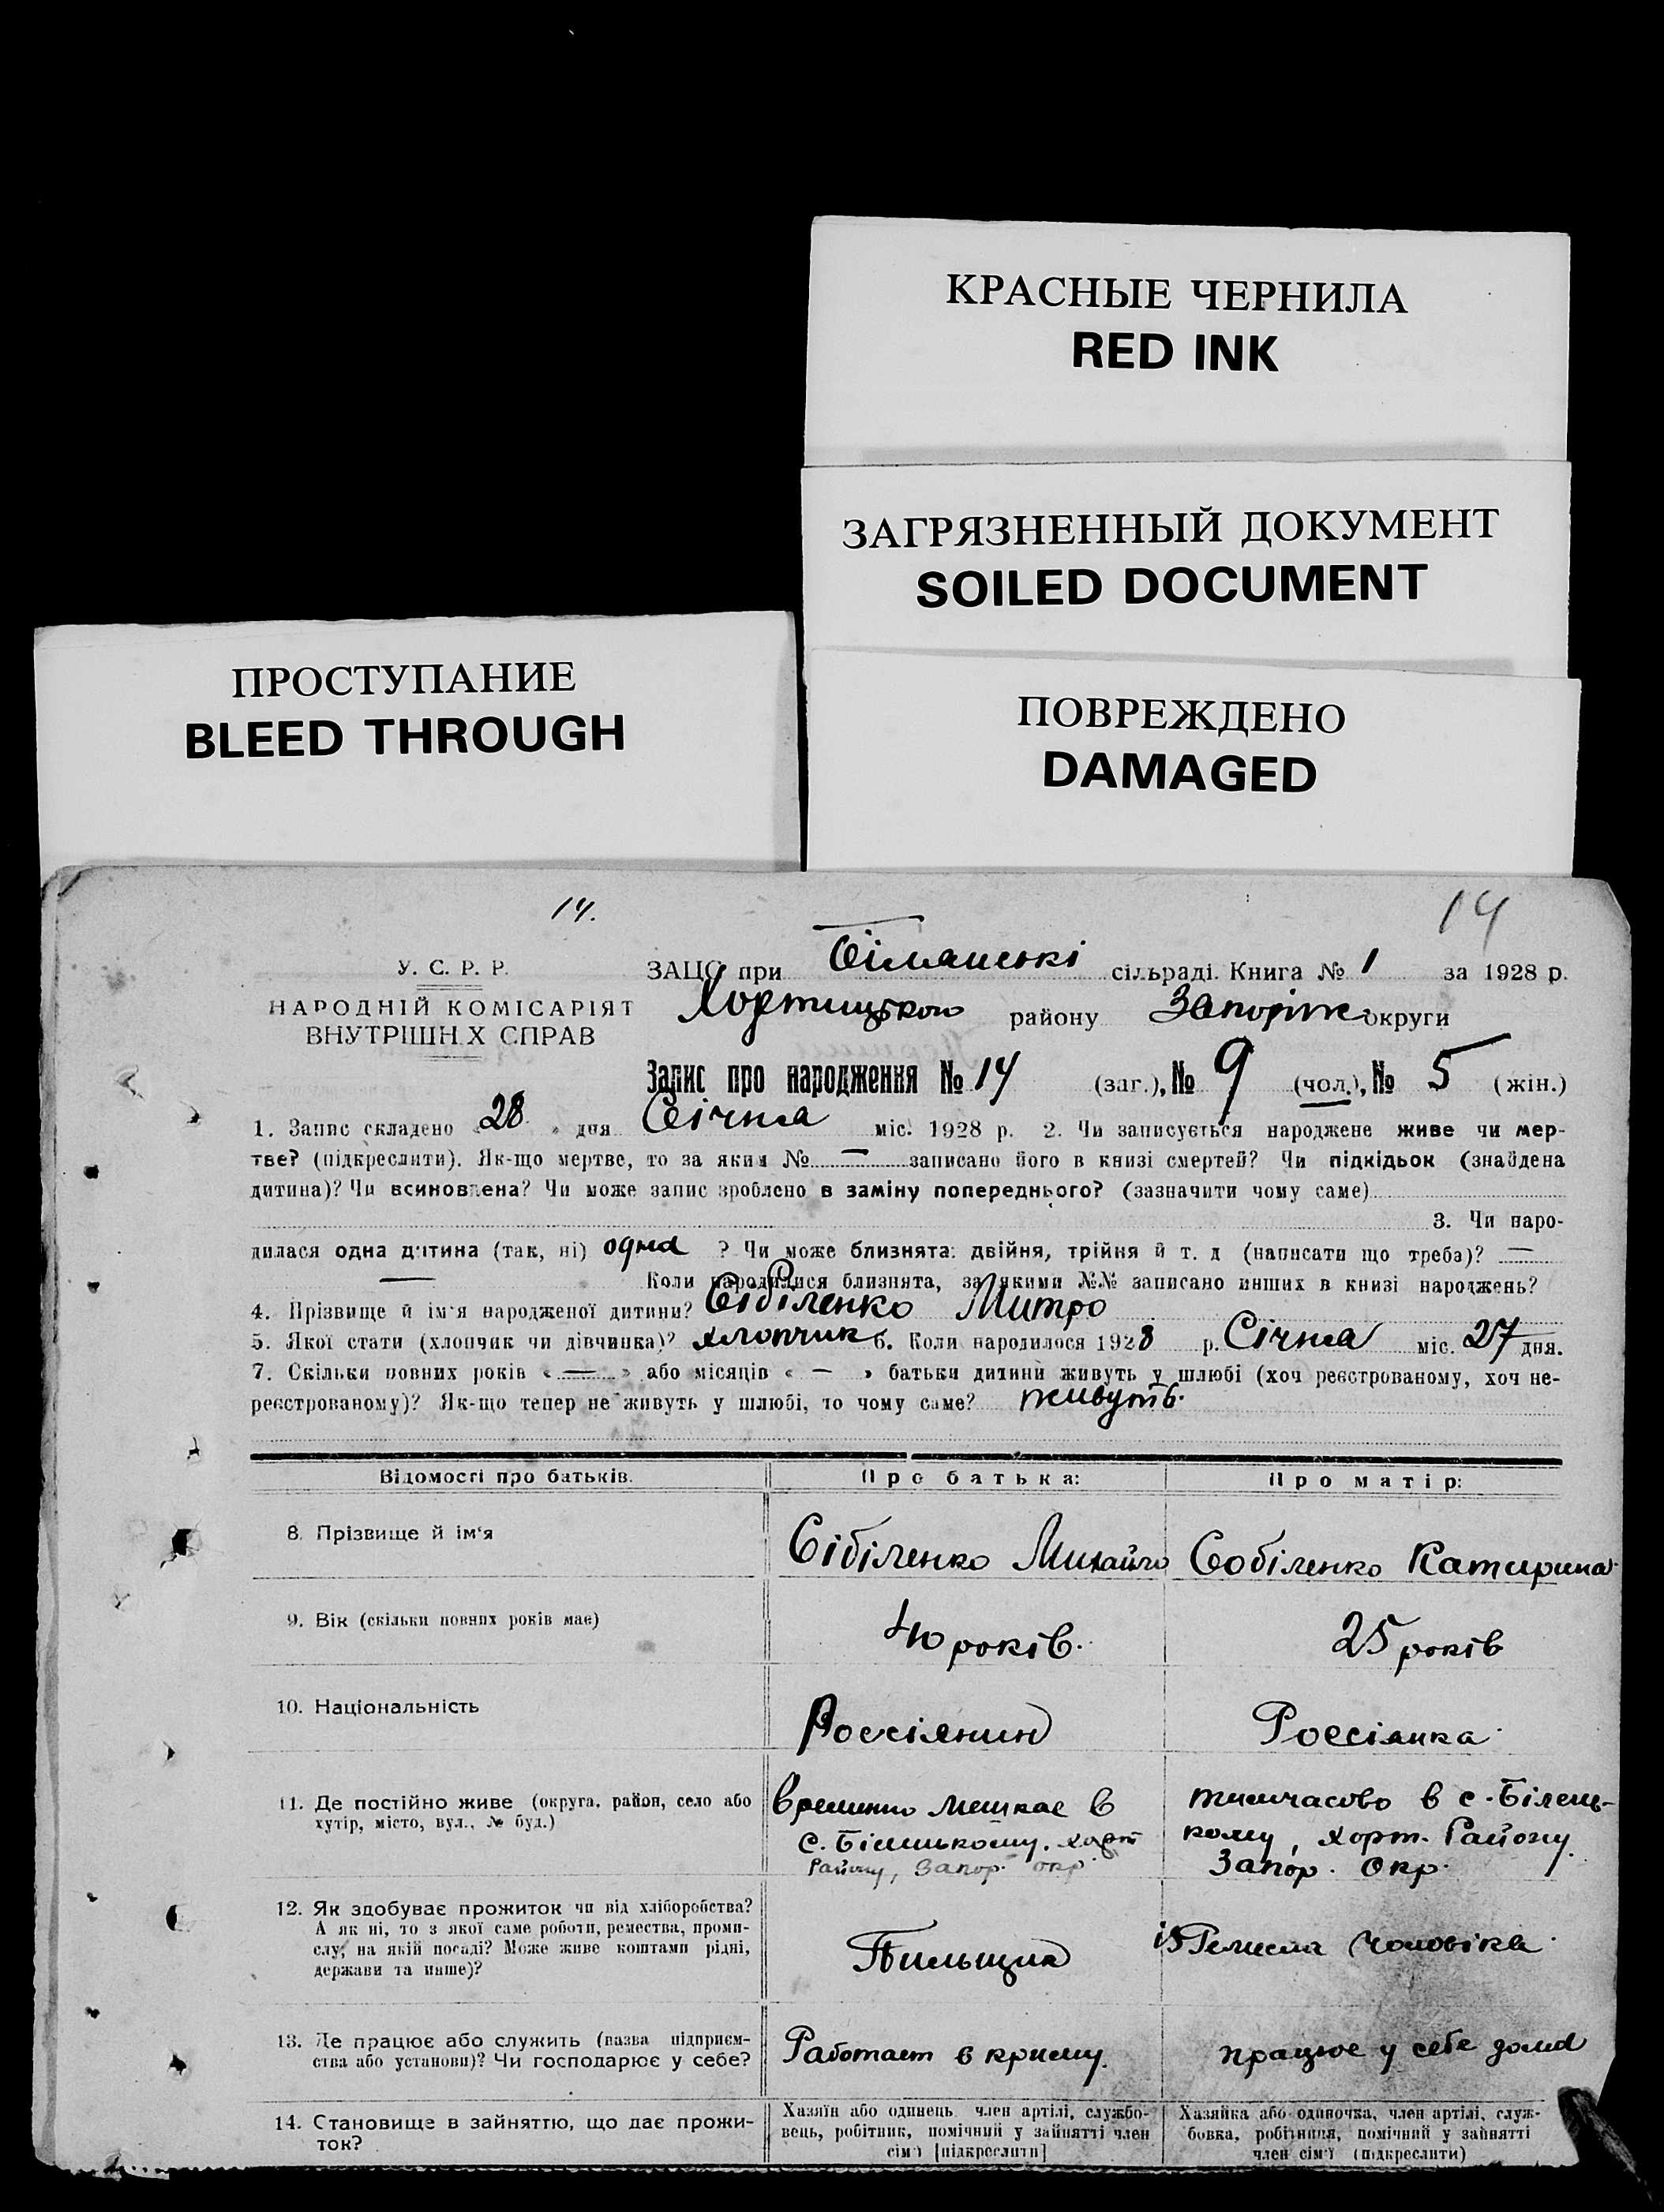 КРАСНЫЕ ЧЕРНИЛА
RED INK
ЗАГРЯЗНЕННЫЙ ДОКУМЕНТ
SOILED DOCUMENT
ПРОСТУПАНИЕ
BLEED THROUGH
ПОВРЕЖДЕНО
DAMAGED
14. 14
У. С. Р. Р.
НАРОДНІЙ КОМІСАРІЯТ
ВНУТРІШН Х СПРАВ
ЗАЦС при сільраді. Книга № 1 за 1928 р.
Хортицького району Запоріж округи
Запис про народження № 14 (заг.), № 9 (чол.), № 5 (жін.)
1. Запис складено « 28 » дня Січня міс. 1928 р. 2. Чи записується народжене живе чи мер-
тве? (підкреслити). Як-що мертве, то за яким № — записано його в книзі смертей? Чи підкідьок (знайдена
дитина)? Чи всиновлена? Чи може запис зроблено в заміну попереднього? (зазначити чому саме)
3. Чи наро-
дилася одна дитина (так, ні) одна ? Чи може близнята: двійня, трійня й т. д (написати що треба)? —
— Коли народилися близнята, за якими №№ записано инших в книзі народжень?
4. Прізвище й ім'я народженої дитини? Сібіленко Митро
5. Якої стати (хлопчик чи дівчинка)? хлопчик 6. Коли народилося 1928 р. Січня міс. 27 дня.
7. Скільки повних років « — » або місяців « — » батьки дитини живуть у шлюбі (хоч реєстрованому, хоч не-
реєстрованому)? Як-що тепер не живуть у шлюбі, то чому саме? живуть.
Відомості про батьків. Про батька: Про матір:
8. Прізвище й ім'я Сібіленко Михайло Собіленко Катирина
9. Вік (скільки повних років має) 40 років. 25 років
10. Національність Россіянин Россіянка
11. Де постійно живе (округа, район, село або
хутір, місто, вул., № буд.)
временно мешкає в
с. хорт
Району, Запор. окр.
тимчасово в с. Білень-
кому, хорт. Району
Запор. Окр.
12. Як здобуває прожиток чи від хліборобства?
А як ні, то з якої саме роботи, ремества, проми-
слу, на якій посаді? Може живе коштами рідні,
держави та инше)?
Пильщик
із Ремесла Чоловіка
13. Де працює або служить (назва підприєм-
ства або установи)? Чи господарює у себе?
Работает в криму.
працює у себе дома
14. Становище в зайняттю, що дає прожи-
ток?
Хазяїн або одинець, член артілі, службо-
вець, робітник, помічний у зайнятті член
сім'ї [підкреслити]
Хазяйка або одиночка, член артілі, служ-
бовка, робітниця, помічний у зайнятті
член сім'ї (підкреслити)